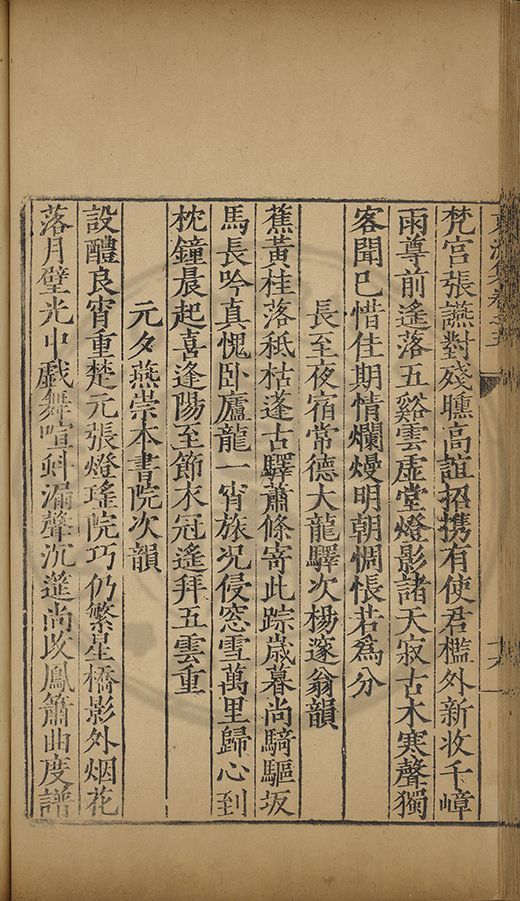 梵宫張讌對殘曛高誼招携有使君檻外新收千嶂
雨尊前遙落五谿雲虚堂燈影諸天寂古木寒聲獨
客聞已惜佳期情爛熳明朝惆悵若爲分
長至夜宿常德大龍驛次楊邃翁韻
蕉黃桂落秪枯蓬古驛蕭條寄此踪歲暮尚騎驅坂
馬長吟真愧卧廬龍一宵旅况侵窓雪萬里歸心到
枕鐘晨起喜逢陽至節衣冠遙拜五雲重
元夕燕崇本書院次韻
設醴良宵重楚元張燈瑤院巧仍繁星橋影外烟花
落月璧光中戯舞喧蚪漏聲沉尚鳳簫曲度譜